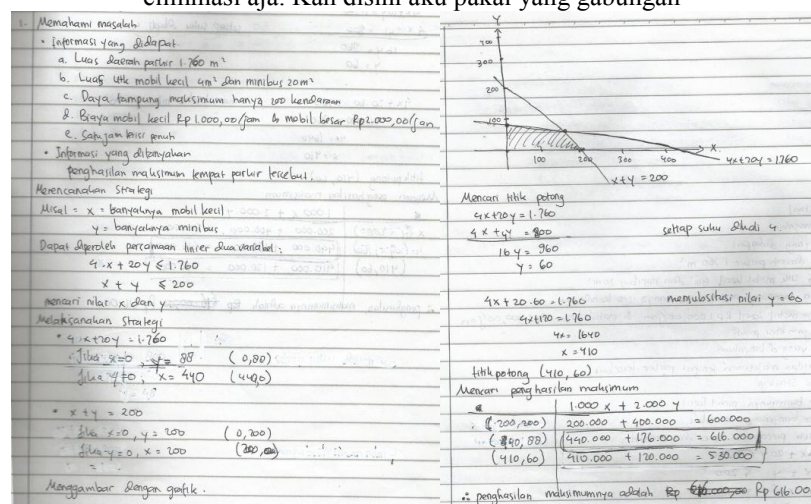 eliminasi aja. Kan disini aku pakai yang gabungan
1. Memahami masalah
• Informasi yang didapat
a. Luas daerah parkir 1.760 m²
b. Luas utk mobil kecil 4m² dan minibus 20m²
c. Daya tampung maksimum hanya 200 kendaraan
d. Biaya mobil kecil Rp 1.000,00/jam & mobil besar Rp2.000,00/jam
e. Satu jam terisi penuh
• Informasi yang ditanyakan
penghasilan maksimum tempat parkir tersebut.
Merencanakan Strategi
Misal = x = banyaknya mobil kecil
y = banyaknya minibus
Dapat diperoleh persamaan linier dua variabel :
4.x + 20y ≤ 1.760
x + y ≤ 200
mencari nilai x dan y
Melaksanakan Strategi
• 4.x + 20y = 1.760
Jika x=0, y = 88 (0,88)
Jika y=0, x = 440 (440,0)
• x + y = 200
Jika x=0, y = 200 (0,200)
Jika y=0, x = 200
Menggambar dengan grafik.
Y
300
200
100
X
100 200 300 400
4x+20y = 1760
x+y = 200
Mencari titik potong
4x+20y = 1.760
4x + 4y = 800 setiap suku dikali 4.
16y = 960
y = 60
4x + 20.60 = 1.760 mensubstitusi nilai y = 60
4x+120 = 1.760
4x = 1640
x = 410
titik potong (410, 60)
Mencari penghasilan maksimum
1.000 x + 2.000 y
(200,200) 200.000 + 400.000 = 600.000
(440, 88) 440.000 + 176.000 = 616.000
(410,60) 410.000 + 120.000 = 530.000
∴ penghasilan maksimumnya adalah Rp 616.00